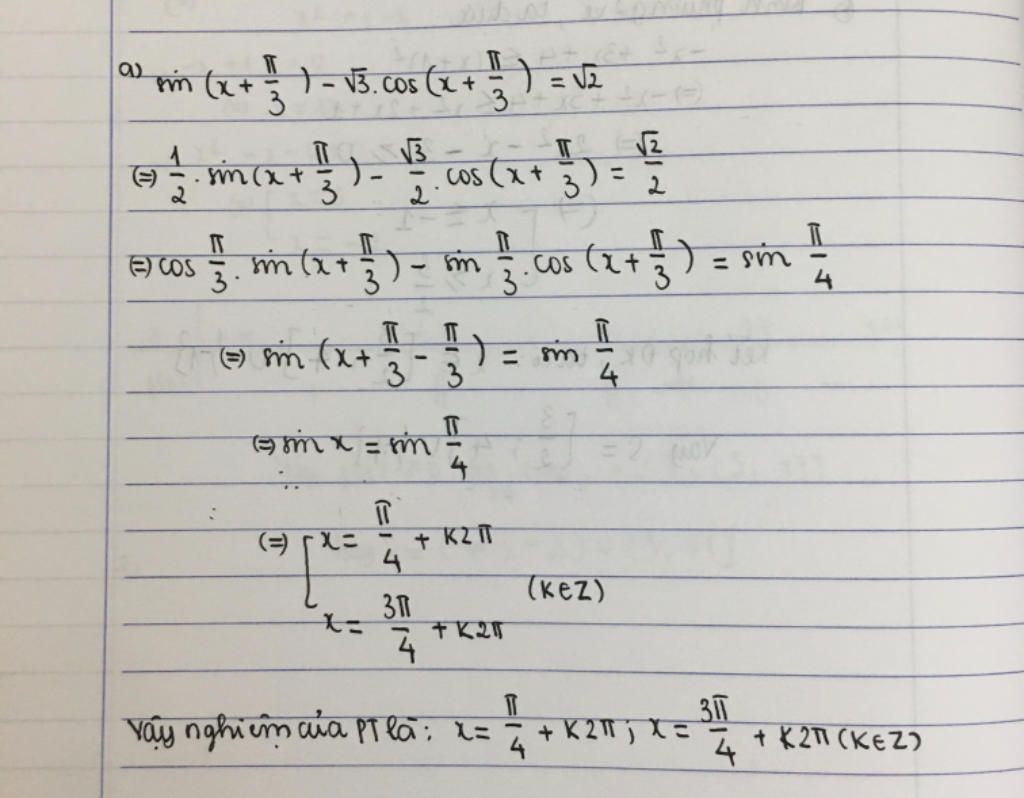 a) sin (x + π/3) - √3. cos (x + π/3) = √2
(=) 1/2 . sin (x + π/3) - √3/2 . cos (x + π/3) = √2/2
(=) cos π/3 . sin (x + π/3) - sin π/3 . cos (x + π/3) = sin π/4
(=) sin (x + π/3 - π/3) = sin π/4
(=) sin x = sin π/4
(=) [ x = π/4 + K2π
(K∈Z)
x = 3π/4 + K2π
Vậy nghiệm của PT là: x = π/4 + K2π ; x = 3π/4 + K2π (K∈Z)